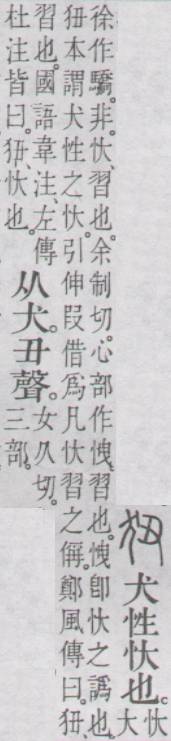 狃 犬性忕也。忕
大
徐作驕。非。忕、習也。余制切。心部作習也。卽忕之譌也。
狃本謂犬性之忕。引伸叚借爲凡忕習之偁。鄭風傳曰。狃、
習也。國語韋注、左傳
杜注皆曰。狃、忕也。
从犬丑聲。
女久切。
三部。